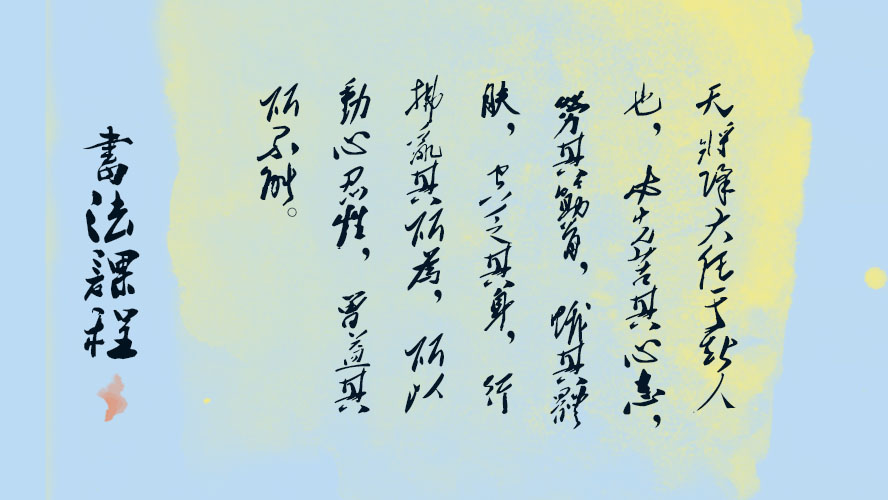 天將降大任于斯人
也，必先苦其心志，
勞其筋骨，餓其體
肤，空乏其身，行
拂亂其所為，所以
動心忍性，曾益其
所不能。
書法課程